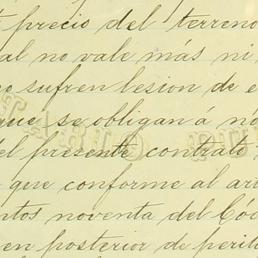 precio del terreno
al no vale más ni
sufren lesion de e
que se obligan á no
del presente contrato
que conforme al ar
ntos noventa del Cód
en posterior de perit